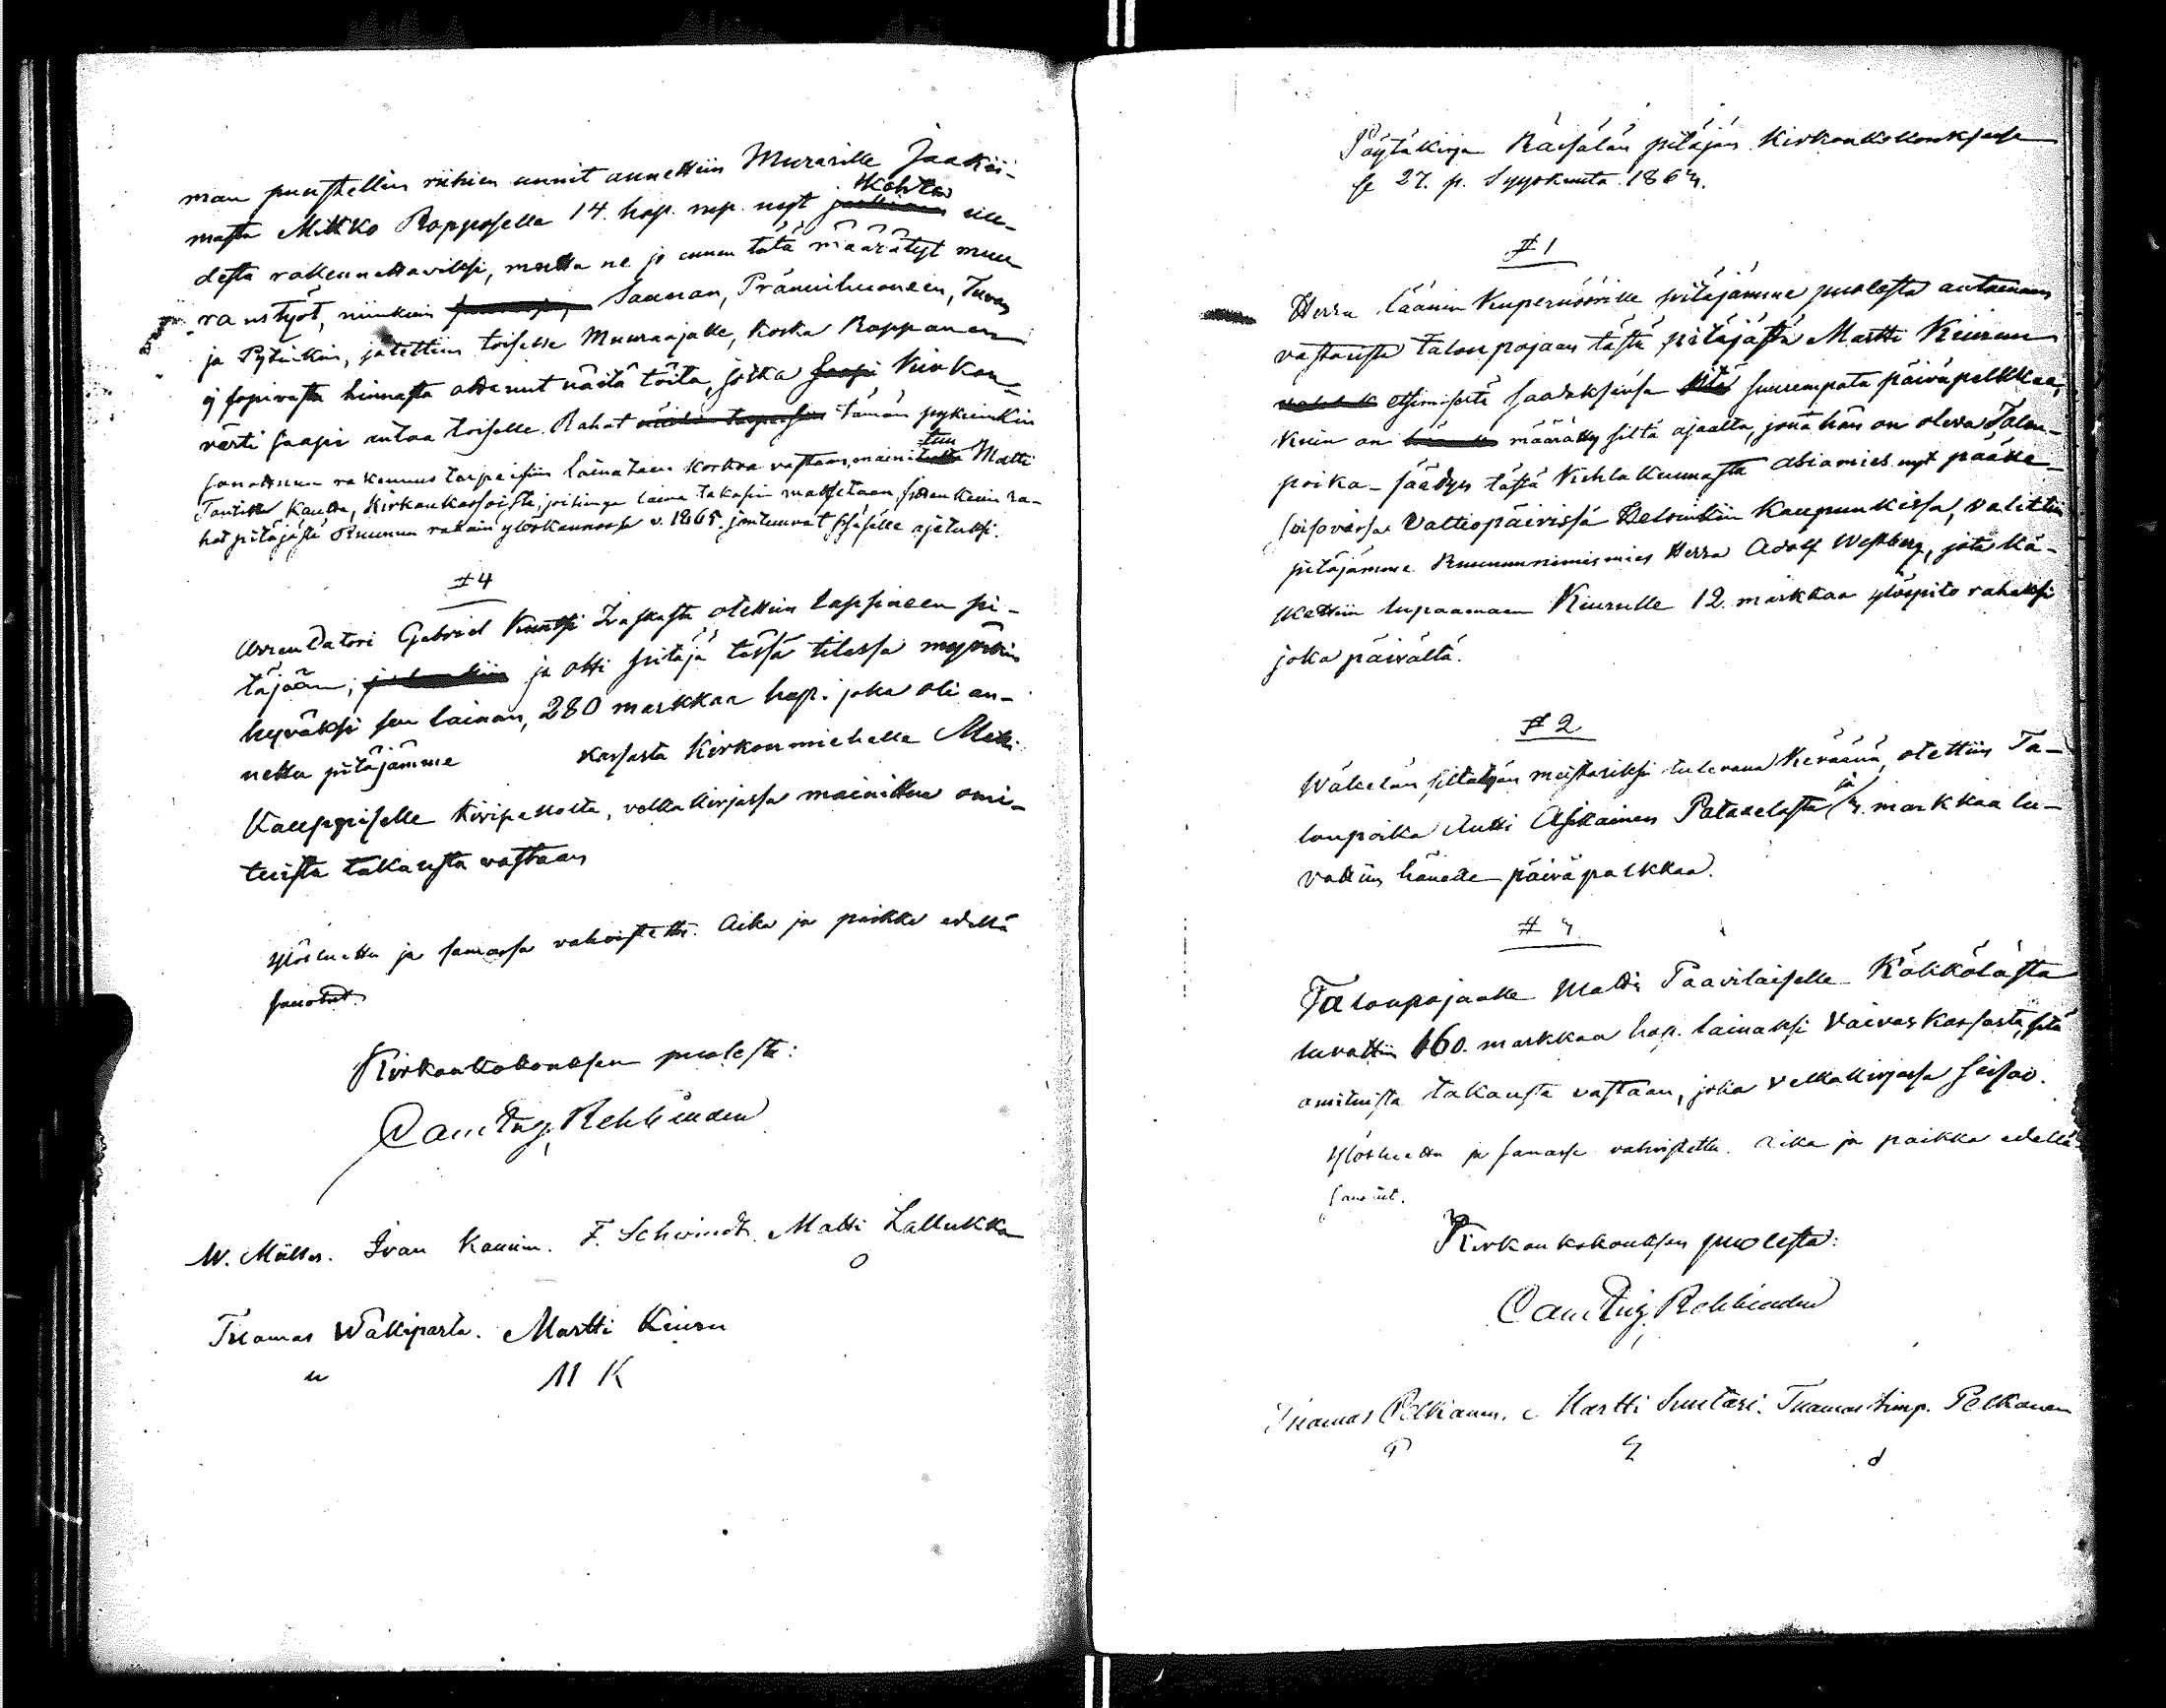 man puustellin riihien uunit annettiin Muurarille Jaakki-
masta Mikko Ropposelle 14. hop. rup. nyt kohta uu-
desta rakennettaviksi, mutta ne jo ennen tätä määrätyt muu-
raustyöt, niinkuin Saunan, Prännihuoneen, Tuvan
ja Pytinkin, jätettiin toiselle Muuraajalle, koska Roppanen
ej sopivasta hinnasta ottanut näitä töitä, jotka Kirkon-
värti saapi antaa toiselle. Rahat tämän pykeinkin
sanottuun rakennus tarpeisiin lainataan korkoa vastaan, mainitun Matti
kautta, Kirkonkassoista, joihinga laina takasin maksetaan, sitten kuin ra-
hat pitäjästä Ruunun rahain ylöskannossa v. 1865. joutuuvat sisälle ajetuksi.
# 4
Arrendatori Gabriel Kuntsi Ivaskasta otettiin lapsineen pi-
täjään; ja otti pitäjä tässä tilassa myöskin
hyväksi sen lainan, 280 markkaa hop. joka oli an-
nettu pitäjämme kassasta Kirkonmiehelle Matti
Kauppiselle Kiripellosta, velkakirjassa mainittua omi-
tuista takausta vastaan
Ylösluettu ja samassa vahvistettu. Aika ja paikka edellä
sanotut.
Kirkonkokouksen puolesta:
Car. Aug. Rehbinder
W. Möller. Ivan Kaunin. F. Schwindt. Matti Lallukka
O
Tuomas Wäkiparta. Martti Kiuru
u M K
Pöytäkirja Räisälän pitäjän Kirkonkokouksessa
se 27. p. Syyskuuta 1863.
# 1
Herra läänin Kupernöörille pitäjämme puolesta antamaan
vastausta talonpojan tästä pitäjästä Martti Kiurun
etsimisestä saadaksensa suurempata päiväpalkkaa,
kuin on määrätty siltä ajaalta, jona hän on oleva Talon-
poika-säädyn tästä Kihlakunnasta asiamies nyt pääke-
seisovassa Valtiopäivissä Helsinkiin Kaupunkissa, valittiin
pitäjämme Ruununnimismies Herra Adolf Westberg, jota kä-
skettiin lupaamaan Kiurulle 12 markkaa ylöspito rahaksi
joka päivältä.
# 2
Wäkelän siltatyön mestariksi tulevana Keväänä, otettiin Ta-
lonpoika Antti Asikainen Potaselasta ja 3. markkaa lu-
vattiin hänelle päiväpalkkaa.
# 3
Talonpojaalle Matti Paavilaiselle Kökkölästä
luvattiin 160. markkaa hop. lainaksi Vaivaskassasta, sitä
omituista takausta vastaan, joka velkakirjassa seisoo.
Ylösluettu ja samassa vahvistettu. Aika ja paikka edellä
sanotut.
Kirkonkokouksen puolesta:
Car. Aug. Rehbinder
Tuomas Pelkianen. Martti Suutari. Tuomas Simp. Pelkonen
P d